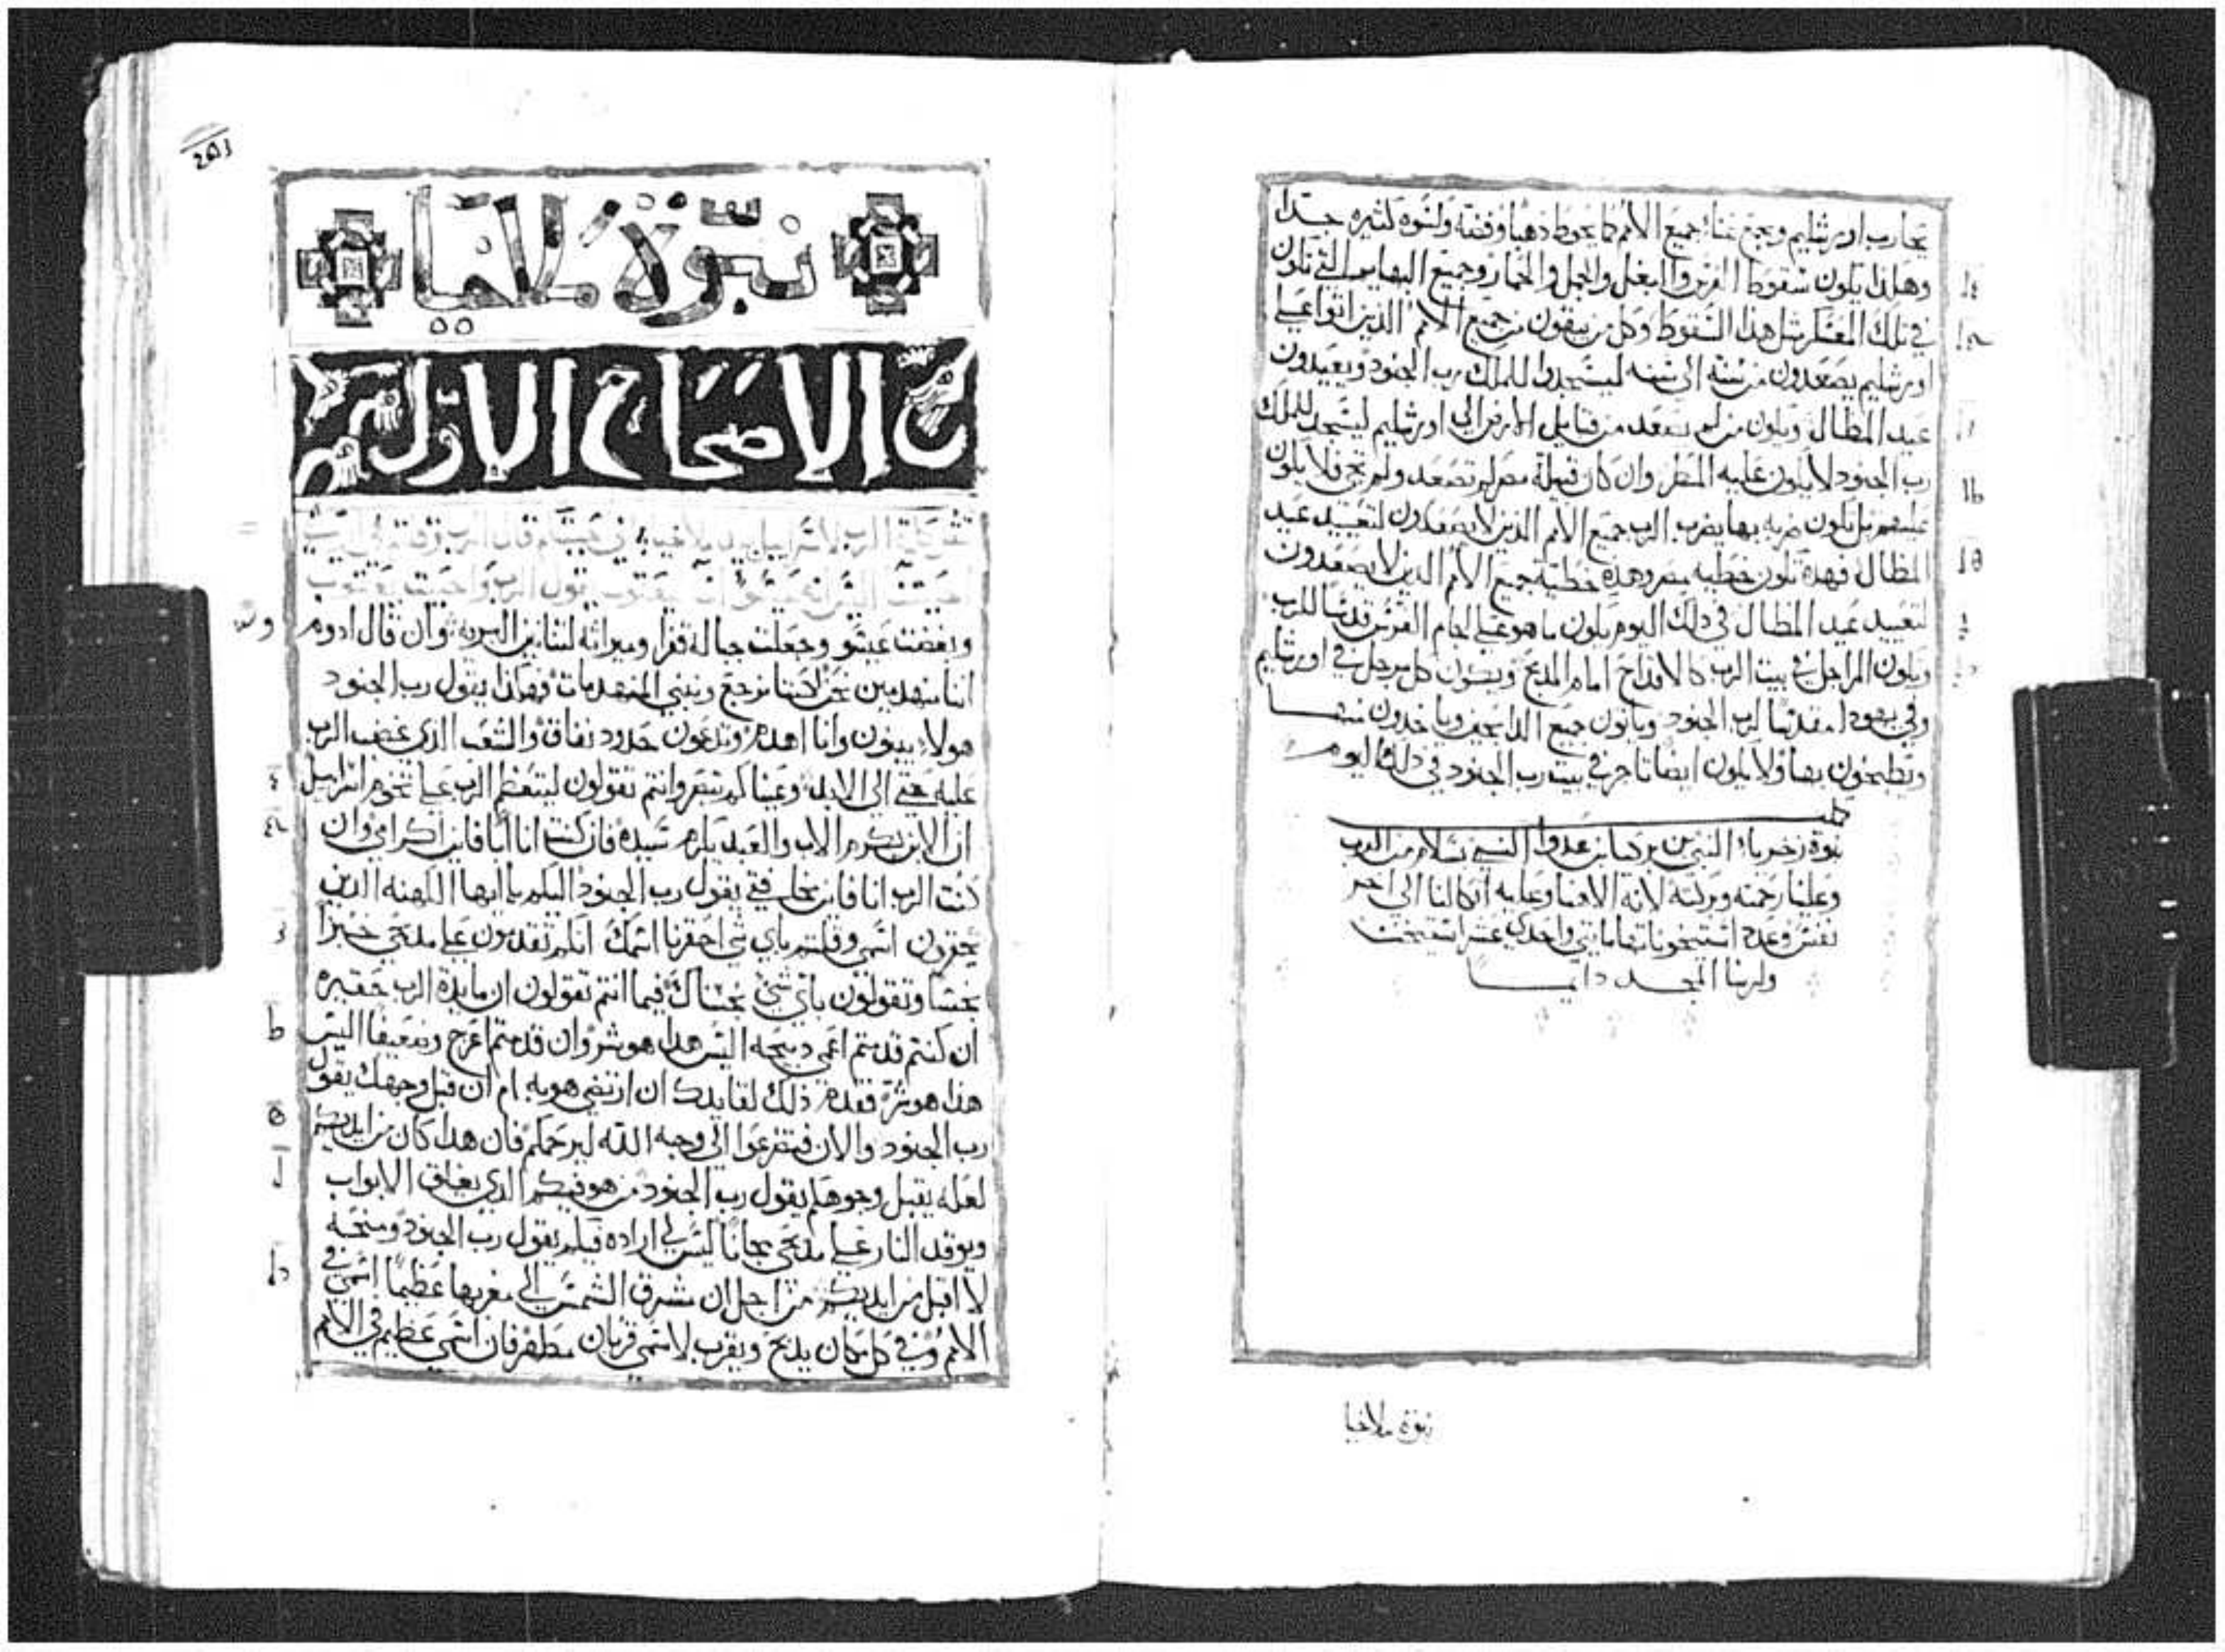 يحارب اورشليم ويجمع غناء جميع الامم كما يحوط ذهبا وفضة وكسوه كثيره جدا
وهكذا يكون سقوط الفرس والبغل والجمل والحمار وجميع البهايم التي تكون
في تلك المعسكر مثل هذا السقوط وكل من يبقون من جميع الامم الذين اتوا علي
اورشليم يصعدون من سنه الى سنه ليسجدوا للملك رب الجنود ويعيدون
عيد المظال ويكون من لم يصعد من قبايل الارض الي اورشليم ليسجد للملك
رب الجنود لا يكون عليه المطر وان كان قبيلة مصر لم تصعد ولم تجي فلا يكون
عليهم بل يكون ضربه بها يضرب الرب جميع الامم الذين لا يصعدون لتعييد عيد
المظال فهذه تكون خطيه مصر وهذه خطية جميع الامم الذين لا يصعدون
لتعييد عيد المظال في ذلك اليوم يكون ما هو علي لجام الفرس قدسا للرب
ويكون المراجل في بيت الرب كالاقداح امام المذبح ويكون كل مرجل في اورشليم
وفي يهودا مقدسا لرب الجنود وياتون جميع الذابحين وياخذون منها
ويطبخون بها ولا يكون ايضا تاجر في بيت رب الجنود في ذلك اليوم
نبوة زخرياء النبي بن برخيا بن عدوا النبي بسلام من الرب
وعلينا رحمته وبركته لانه الاهنا وعليه اتكالنا الى اخر
نفس وعدة استيخوناتها مايتي واحدي عشر استيخن
ولربنا المجد دايما
نبوة ملاخيا
201
نبوة ملاخيا
الاصحاح الاول
ثقل كلمة الرب لاسراييل بيد ملاخيا اني احببتكم قال الرب وقلتم
يعقوب يقول الرب واحببت يعقوب
وبغضت عيسو وجعلت جباله قفرا وميراثه لتنانين البريه وان قال ادوم
اننا منهدمين نحن لكننا نرجع ونبني المنهدمات فهكذا يقول رب الجنود
هولاء يبنون وانا اهدم وتدعون حدود نفاق والشعب الذي غضب الرب
عليه حتي الى الابد وعيناكم تبصر وانتم تقولون ليتعظم الرب علي تخوم اسراييل
ان الابن يكرم الاب والعبد يكرم سيده فان كنت انا ابا فاين اكرامي وان
كنت الرب انا فاين مخافتي يقول رب الجنود اليكم يا ايها الكهنه الذين
تحقرون اسمي وقلتم باي شي احقرنا اسمك انكم تقدمون علي مذبحي خبزا
نجسا وتقولون باي شي نجسناك فيما انتم تقولون ان مايدة الرب حقيره
ان كنتم قدمتم اعمي ذبيحه اليس هذا هو شر وان قدمتم اعرج وضعيفا اليس
هذا هو شر فقدم ذلك لقايدك ان ارتضي هو به ام ان قبل وجهك يقول
رب الجنود والان فتضرعوا الى وجه الله ليرحمكم فان هذا كان من ايديكم
لعله يقبل وجوهكم يقول رب الجنود من هو فيكم الذي يغلق الابواب
ويوقد النار علي مذبحي مجانا ليس لي اراده فيكم يقول رب الجنود ومنحه
لا اقبل من ايديكم من اجل ان مشرق الشمس الي مغربها عظيما اسمي في
الامم وفي كل مكان يذبح ويقرب لاسمي قربان مطهر فان اسمي عظيم في الامم